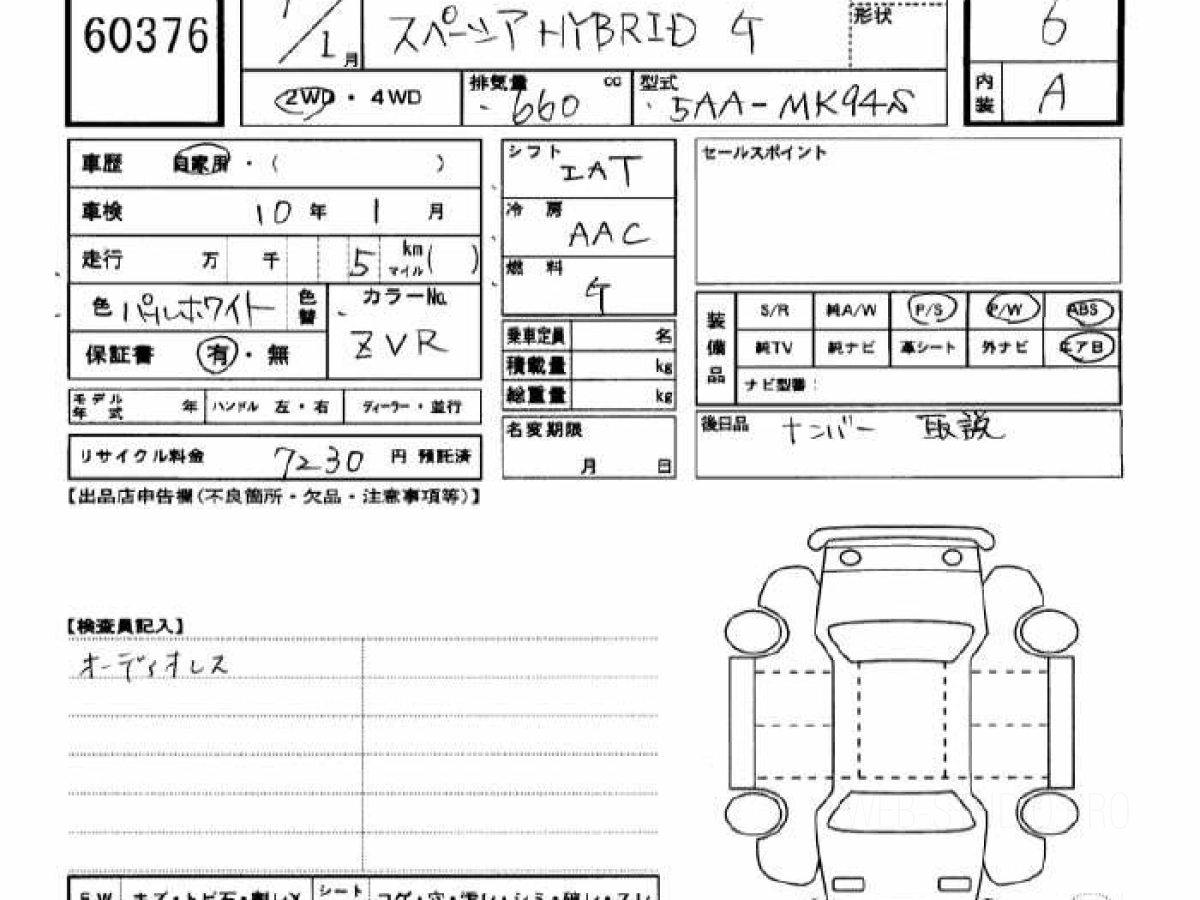 60376
1 月
スペーシア HYBRID G
形状
6
2WD ・ 4WD
排気量 cc 660
型式 5AA-MK94S
内装 A
車歴 自家用 ・ ( )
車検 10 年 1 月
走行 万 千 5 km マイル ( )
色 パールホワイト 色替
カラーNo. ZVR
保証書 有 ・ 無
シフト IAT
冷房 AAC
燃料 G
セールスポイント
乗車定員 名
積載量 kg
総重量 kg
装備品
S/R 純A/W P/S P/W ABS
純TV 純ナビ 革シート 外ナビ エアB
ナビ型番:
モデル年式 年 ハンドル 左・右 ディーラー・並行
名変期限 月 日
後日品 ナンバー 取説
リサイクル料金 7230 円 預託済
【出品店申告欄(不良箇所・欠品・注意事項等)】
【検査員記入】
オーディオレス
F.W キズ・トビ石・割レX シート コゲ・穴・汚レ・シミ・破レ・スレ